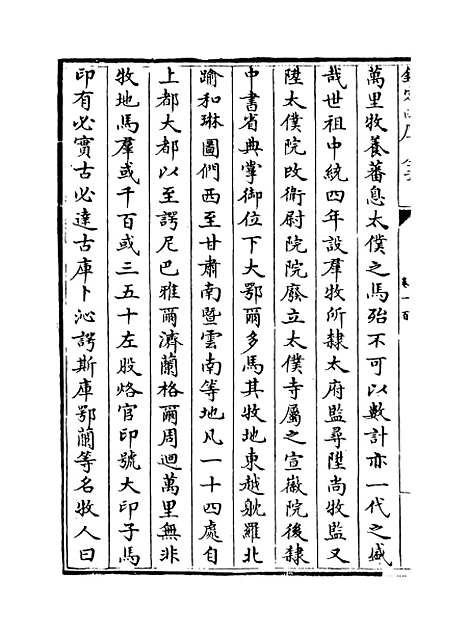 欽定四庫全書
卷一百
萬里牧養蕃息太僕之馬殆不可以數計亦一代之盛
哉世祖中統四年設羣牧所隸太府監尋陞尚牧監又
陞太僕院改衛尉院院廢立太僕寺屬之宣徽院後隸
中書省典掌御位下大鄂爾多馬其牧地東越躭羅北
踰和琳圖們西至甘肅南暨雲南等地凡一十四處自
上都大都以至諤尼巴雅爾濟蘭格爾周迴萬里無非
牧地馬羣或千百或三五十左股烙官印號大印子馬
印有必實古必達古庫卜沁諤斯庫鄂蘭等名牧人曰